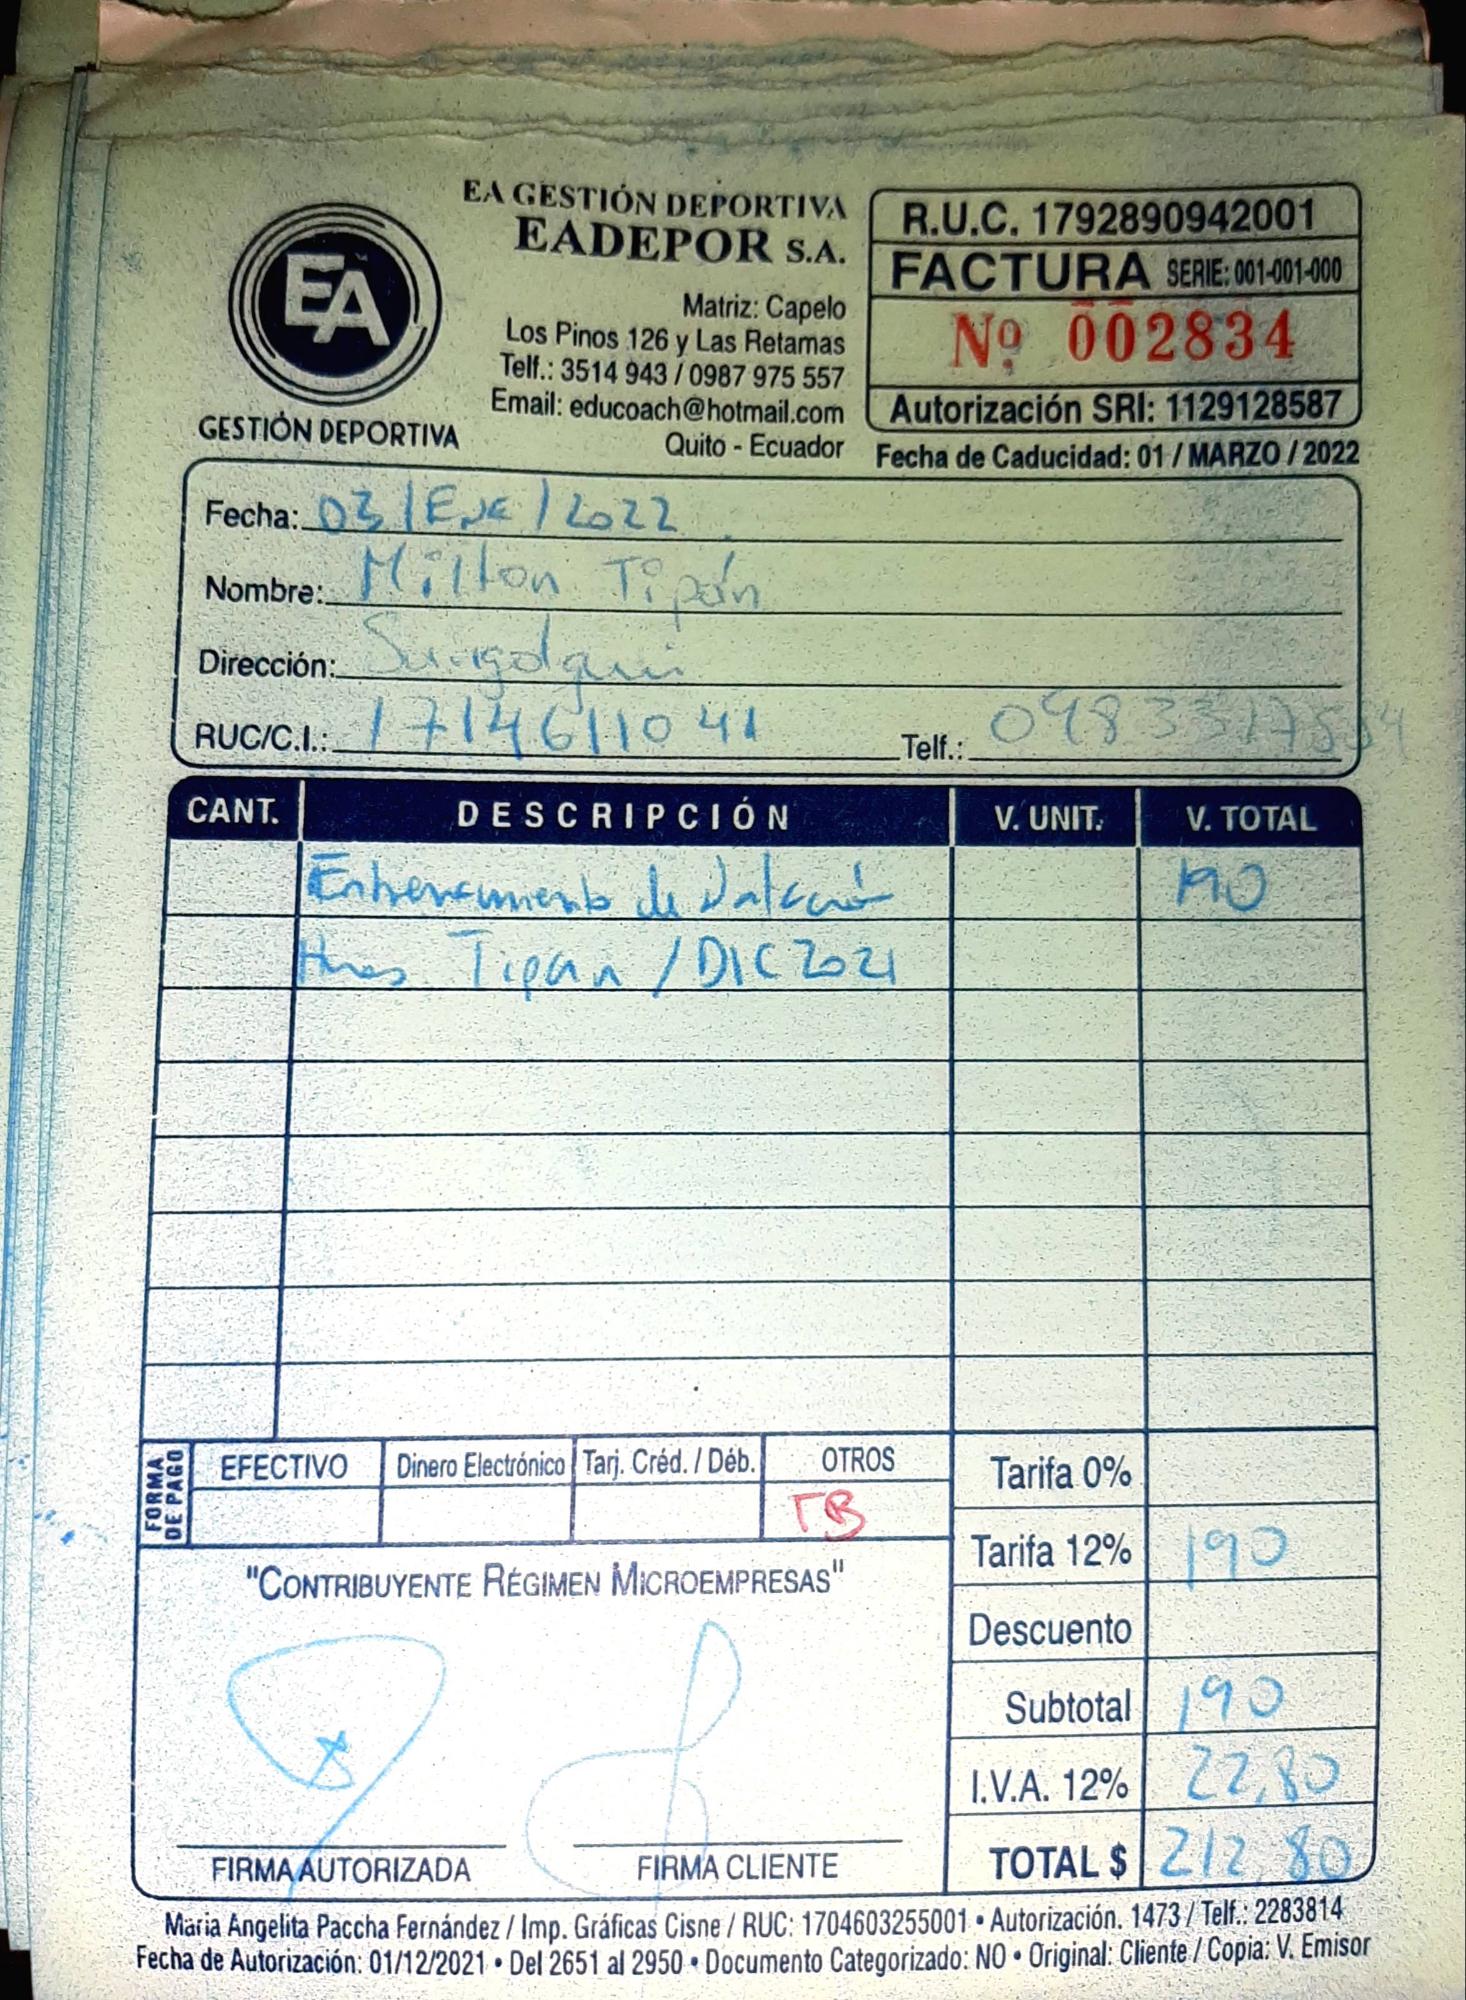 EA GESTIÓN DEPORTIVA
EADEPOR S.A.
EA
GESTIÓN DEPORTIVA
Matriz: Capelo
Los Pinos 126 y Las Retamas
Telf.: 3514 943 / 0987 975 557
Email: educoach@hotmail.com
Quito - Ecuador
R.U.C. 1792890942001
FACTURA SERIE: 001-001-000
Nº 002834
Autorización SRI: 1129128587
Fecha de Caducidad: 01 / MARZO / 2022
Fecha: 03/Ene/2022
Nombre: Milton Tipán
Dirección: Sangolqui
RUC/C.I.: 1714611041 Telf.:
CANT. DESCRIPCIÓN V. UNIT. V. TOTAL
Entrenamiento de Natación 190
Hnos. Tipan / DIC 2021
FORMA DE PAGO
EFECTIVO Dinero Electrónico Tarj. Créd. / Déb. OTROS
TB
Tarifa 0%
Tarifa 12% 190
Descuento
Subtotal 190
I.V.A. 12% 22,80
TOTAL $ 212,80
"CONTRIBUYENTE RÉGIMEN MICROEMPRESAS"
FIRMA AUTORIZADA FIRMA CLIENTE
Maria Angelita Paccha Fernández / Imp. Gráficas Cisne / RUC: 1704603255001 • Autorización. 1473 / Telf.: 2283814
Fecha de Autorización: 01/12/2021 • Del 2651 al 2950 • Documento Categorizado: NO • Original: Cliente / Copia: V. Emisor